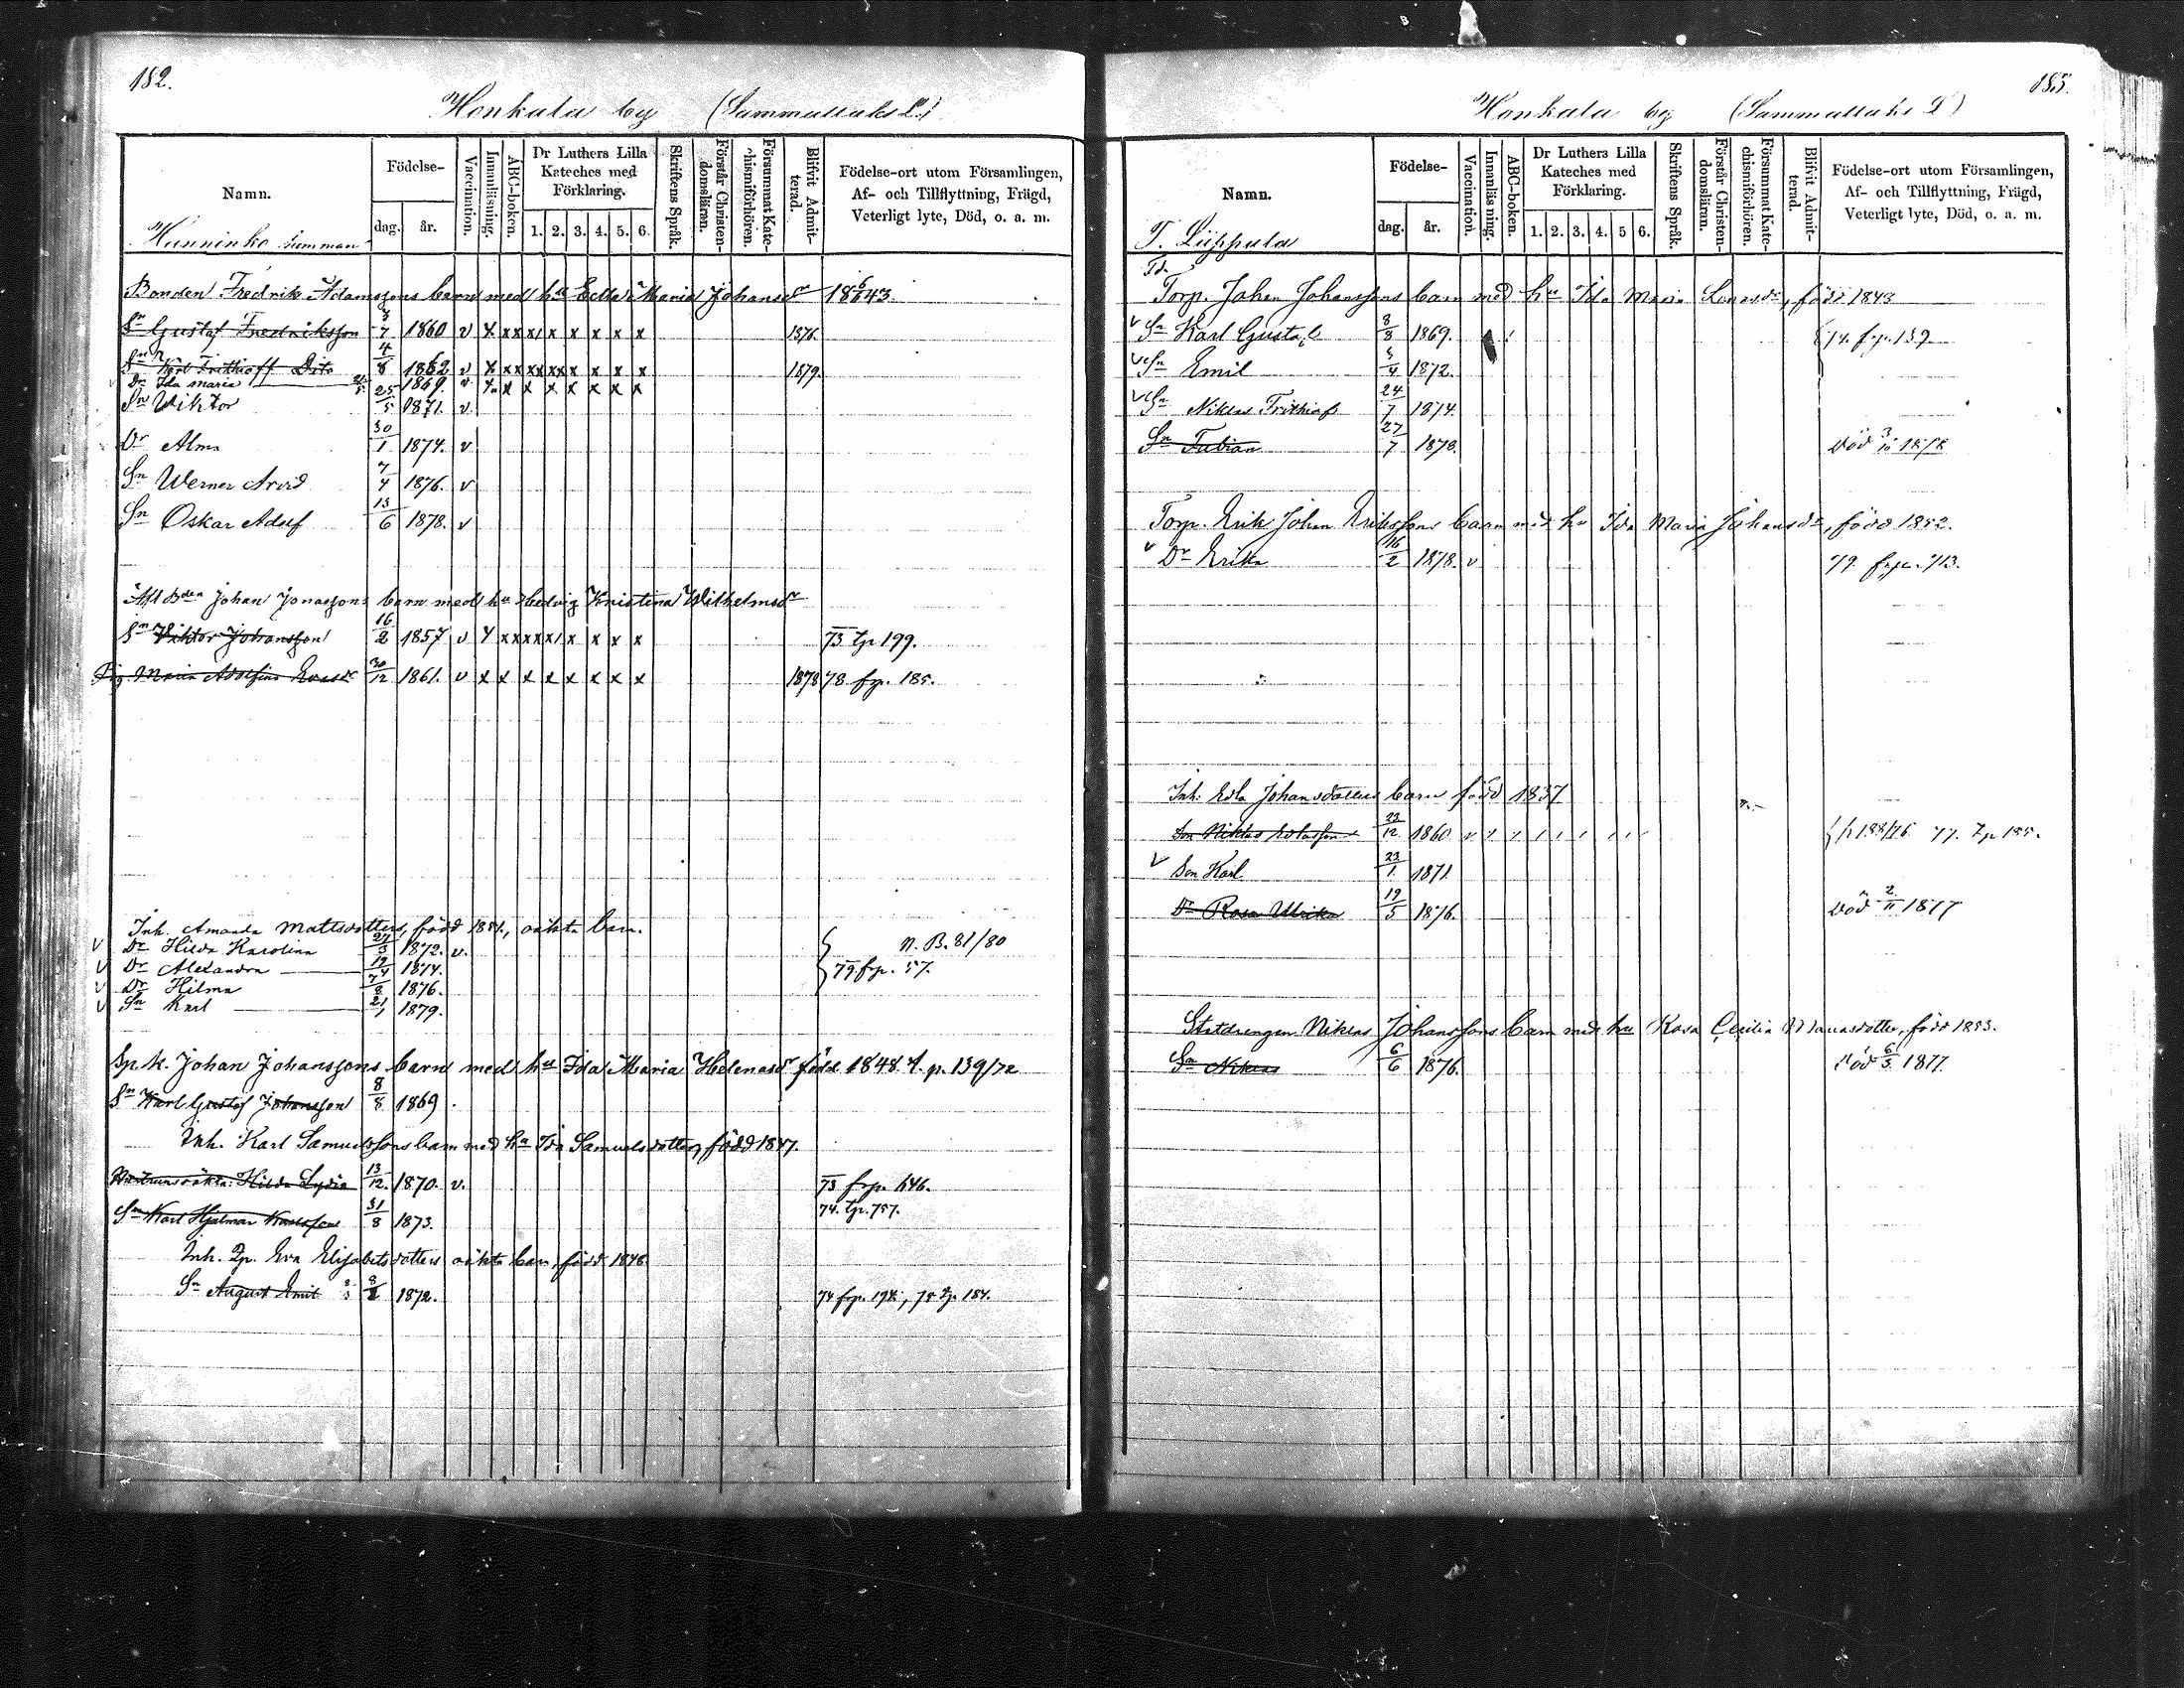 182.
Honkala by (Sammattaks L.)
Namn. Födelse- dag. år. Vaccination. Innanläsning. ABC-boken. Dr Luthers Lilla Kateches med Förklaring. 1. 2. 3. 4. 5. 6. Skriftens Språk. Förstår Christendomsläran. Försummat Katechismiförhören. Blifvit Admitterad. Födelse-ort utom Församlingen, Af- och Tillflyttning, Frägd, Veterligt lyte, Död, o. a. m.
Hunninko
Bonden Fredrik Adamssons barn med hu Maria Johansdr
Sn Gustaf Fredriksson 7 1860 v x x x x x x x x x 1876.
Sn Karl Frithioff Dito 4/8 1862 v x x x x x x x x x 1879.
Dr Ida Maria 1869. v x x x x x x x
Sn Viktor 25/5 1871. v
Dr Alma 30/1 1874. v
Sn Werner Arvid 7/4 1876. v
Sn Oskar Adolf 13/6 1878. v
Johan Jonassons barn med hu Hedvig Kristina Wilhelmsdr
Sn Viktor Johansson 16/2 1857 v x x x x x x x x 73 tp 199.
Pig. Maria Adolfina Evasdr 30/12 1861. v x x x x x x x x 1878 78 frp. 185.
Inh. Amanda Mattsdotters, född 1851., oäkta barn.
Dr Hilda Karolina 27/3 1872. v. N. B. 81/80
Dr Alexandra 19/4 1874. 79 frp. 57.
Dr Hilma 7/8 1876.
Sn Karl 21/1 1879.
Sp. k. Johan Johanssons barn med hu Ida Maria Helenasdr född 1848. p. 139/72
Sn Karl Gustaf Johansson 8/8 1869.
Inh. Karl Samuelssons barn med hu Ida Samuelsdotter, född 1847.
Hilda Lydia 13/12. 1870. v. 73 frp. 646.
74. tp. 757.
Sn Karl Hjalmar Karlsson 31/8 1873.
Inh. Eva Elisabetsdotters oäkta barn, född 1848
Sn August Emil 1872. 74 frp. 198, 78 tp. 184.
183.
Honkala by (Sammattaks L)
Namn. Födelse- dag. år. Vaccination. Innanläsning. ABC-boken. Dr Luthers Lilla Kateches med Förklaring. 1. 2. 3. 4. 5 6. Skriftens Språk. Förstår Christendomsläran. Försummat Katechismiförhören. Blifvit Admitterad. Födelse-ort utom Församlingen, Af- och Tillflyttning, Frägd, Veterligt lyte, Död, o. a. m.
T. Lüppula
Torp. Johan Johanssons barn med hu Ida Maria född 1843
v Sn Karl Gustaf 8/8 1869. 74. frp. 139
v Sn Emil 1872.
v Sn Niklas Frithiof 24/7 1874.
Sn Fabian 27/7 1878. Död 1878
Torp. Erik Johan Erikssons barn med hu Ida Maria Johansdr, född 1852.
v Dr Erika 16/2 1878. v 79. frp. 713.
Inh. Edla Johansdotters barn född 1837
Son Niklas 23/12 1860 77. tp 185.
v Son Karl 23/1. 1871
Dr Rosa Ulrika 19/5 1876. Död 2/11 1877
Statdrengen Niklas Johanssons barn med hu Rosa Cecilia född 1853.
Sn Niklas 6/6 1876. Död 6/5. 1877.